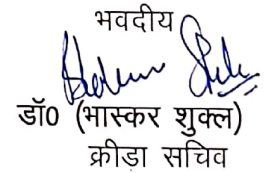 भवदीय
डॉ0 (भास्कर शुक्ल)
क्रीडा सचिव